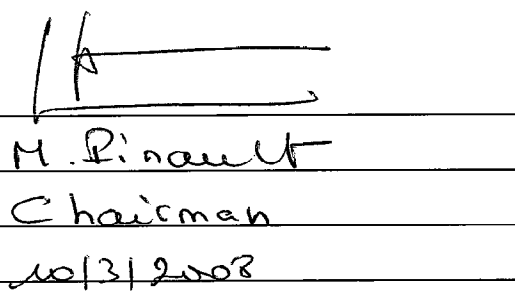 M. Pinault
Chairman
10/3/2008